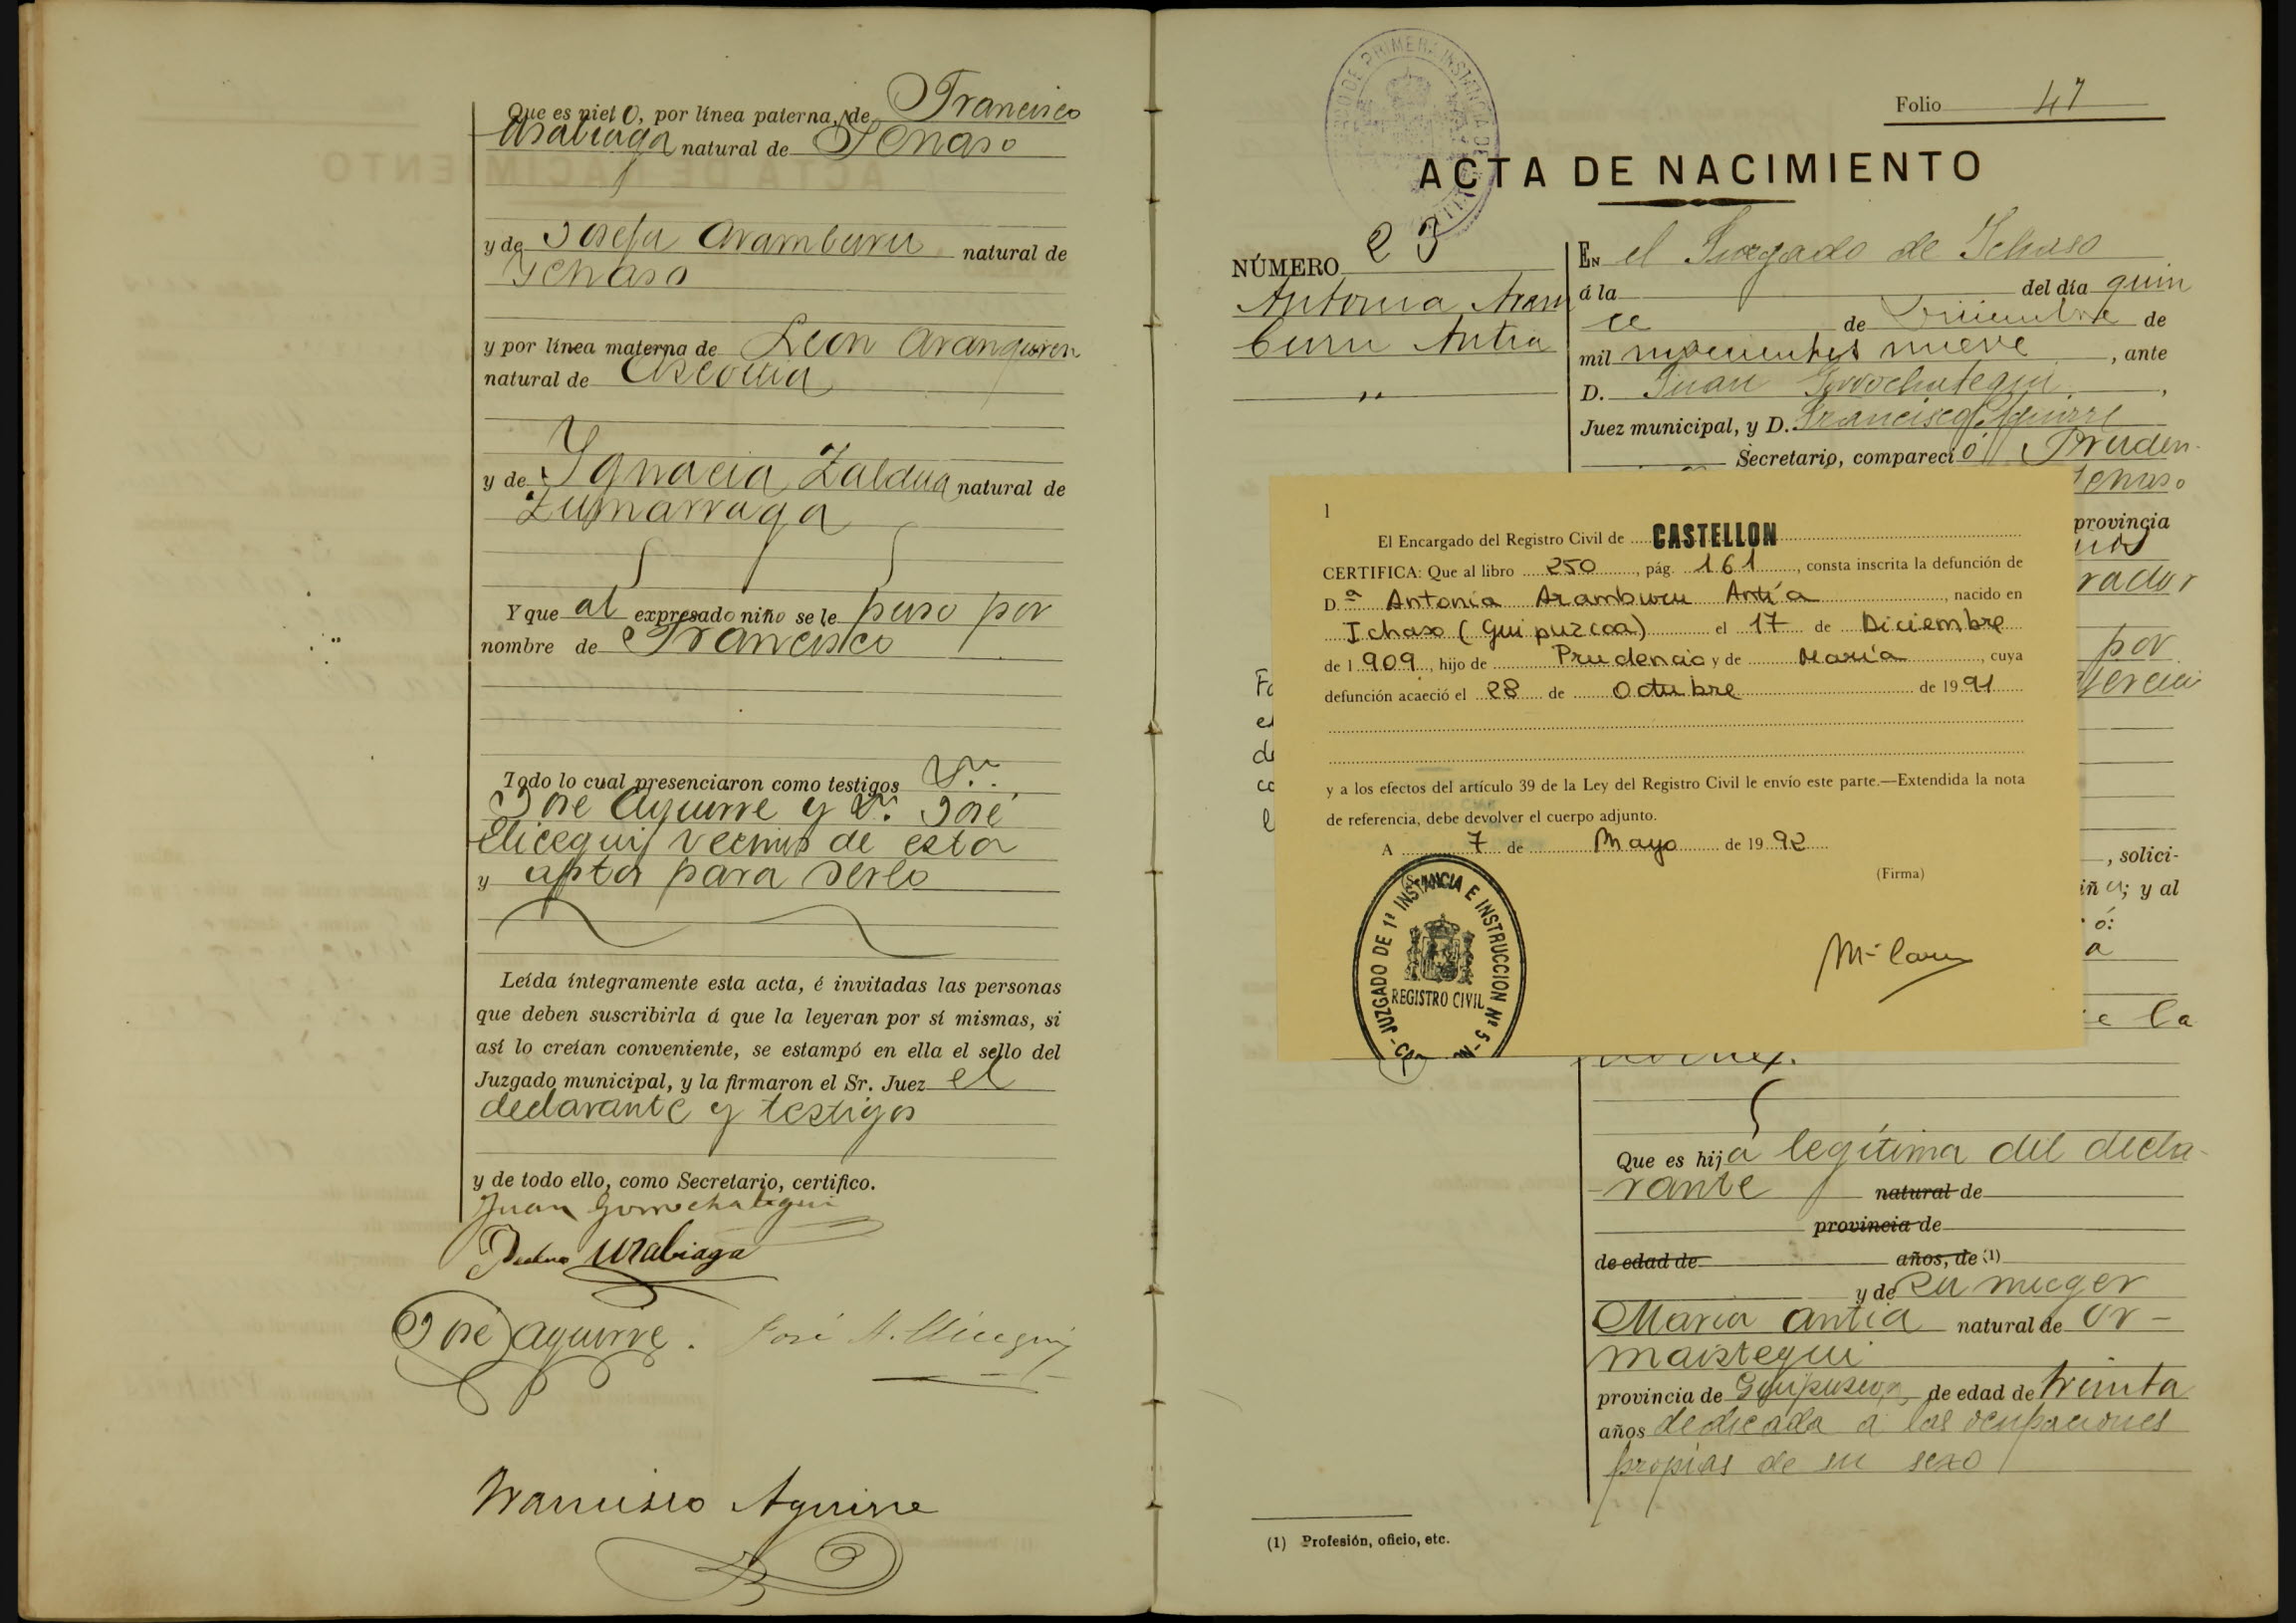 Que es nieto, por línea paterna, de Francisco
Urabiaga natural de Ichaso
y de Josefa Aramburu natural de
Ychaso
y por línea materna de Leon Aranguren
natural de Ascoitia
y de Ygnacia Zaldua natural de
Zumarraga
Y que al expresado niño se le puso por
nombre de Francisco
Todo lo cual presenciaron como testigos D.
José Aguirre y D. José
Elicegui vecinos de esta
y aptos para serlo
Leída íntegramente esta acta, é invitadas las personas
que deben suscribirla á que la leyeran por sí mismas, si
así lo creían conveniente, se estampó en ella el sello del
Juzgado municipal, y la firmaron el Sr. Juez el
declarante y testigos
y de todo ello, como Secretario, certifico.
Juan Gorrochategui
Pedro Urabiaga
José Aguirre. José A. Elicegui
Francisco Aguirre
Folio 47
ACTA DE NACIMIENTO
NÚMERO 23
Antonia Aram
buru Antia
"
EN el Juzgado de Ichaso
á la del día quin
ce de Diciembre de
mil novecientos nueve, ante
D. Juan Gorrochategui,
Juez municipal, y D. Francisco Aguirre
Secretario, compareció Pruden-
Ichaso
provincia
rador
por
, solici-
iña; y al
ó:
a
la
1
El Encargado del Registro Civil de CASTELLON
CERTIFICA: Que al libro 250, pág. 161, consta inscrita la defunción de
D.ª Antonia Aramburu Antía, nacido en
Ichaso (Guipuzcoa) el 17 de Diciembre
de 1909, hijo de Prudencio y de María, cuya
defunción acaeció el 28 de Octubre de 1991
y a los efectos del artículo 39 de la Ley del Registro Civil le envío este parte.—Extendida la nota
de referencia, debe devolver el cuerpo adjunto.
A 7 de Mayo de 1992
(Firma)
JUZGADO DE 1ª INSTANCIA E INSTRUCCION Nº 5
REGISTRO CIVIL
Que es hija legítima del decla-
rante natural de
provincia de
de edad de años, de (1)
y de su muger
Maria Antia natural de Or-
maiztegui
provincia de Guipuzcoa, de edad de treinta
años dedicada a las ocupaciones
propias de su sexo
(1) Profesión, oficio, etc.